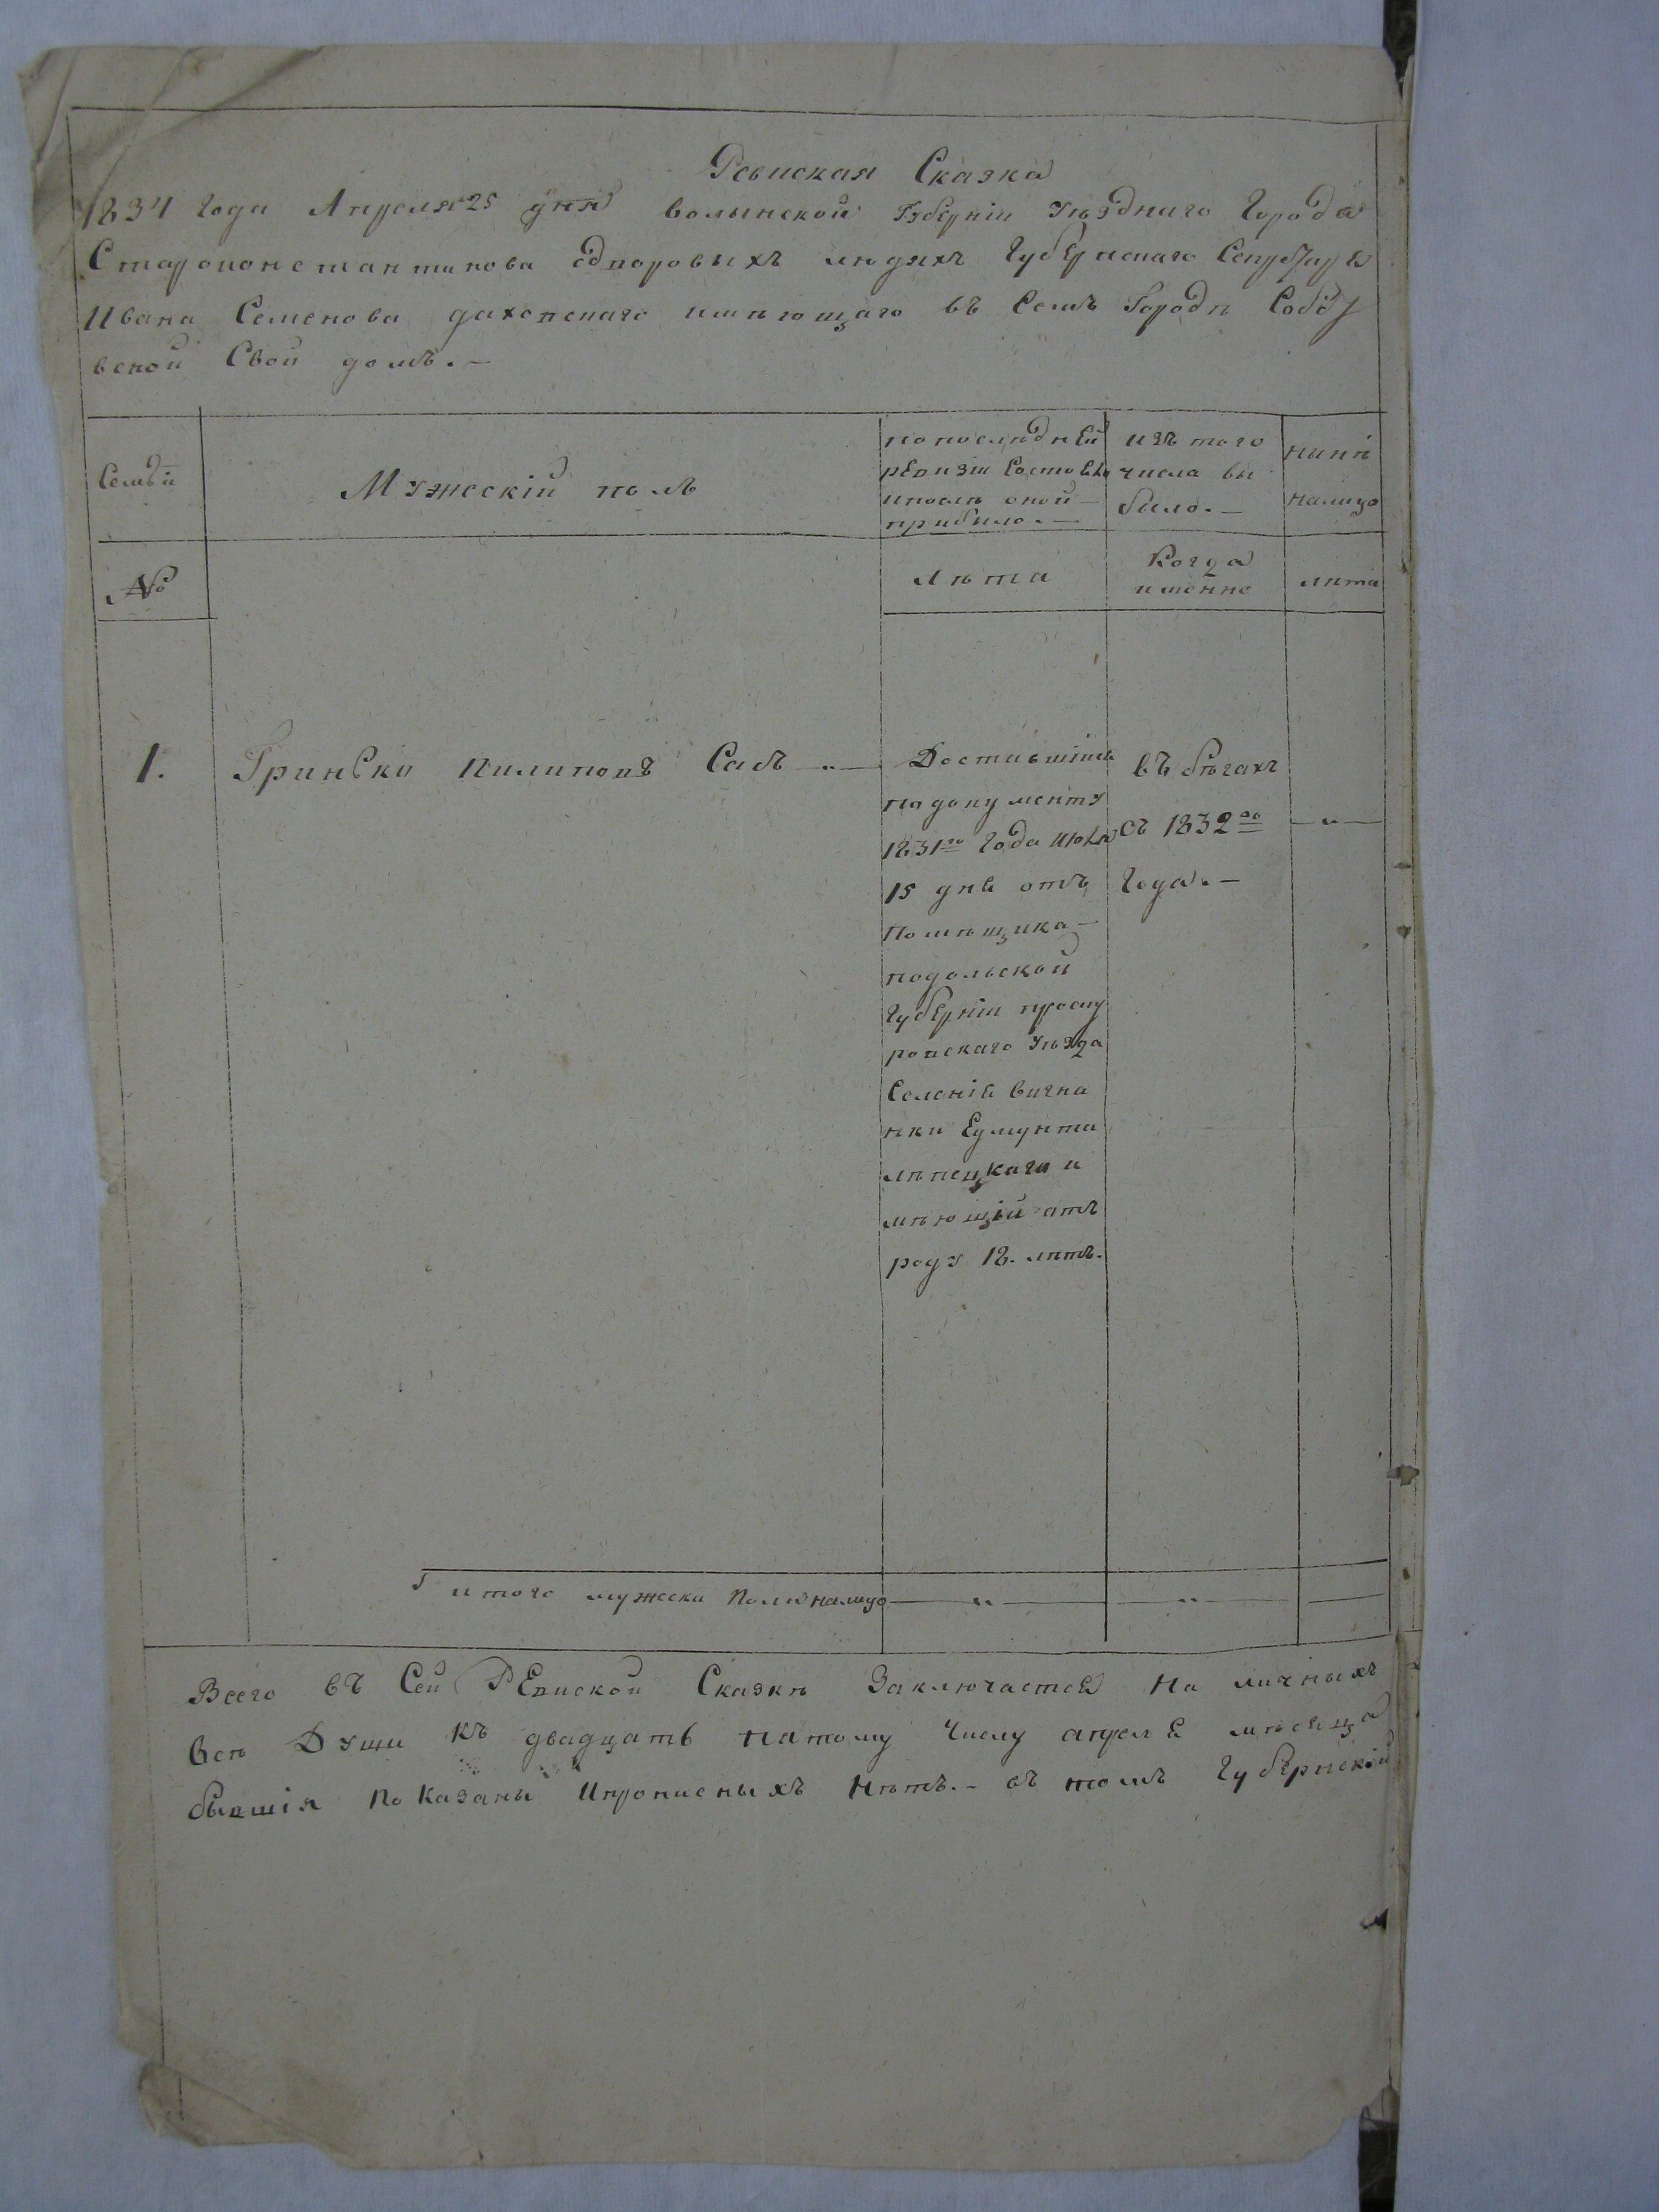 Ревиская Сказка
1834 года Апреля 25 дня волынской Губерніи уѣзднаго Города
Староконстантинова одворовыхъ людяхъ Губернскаго Секретаря
Ивана Семенова имѣющаго въ Семъ Городѣ
Свой домъ.—
Семьи
Мужескій полъ
по последней
ревизіи Состояло
и послѣ оной—
прибыло.—
изъ того
числа вы
было.—
нынѣ
налицо
№
Лѣта
Когда
именно
лѣта
1.
Гринско Пилиповъ Самъ „—
Доставшійся
по документу
1831го Года Июля
15 дня отъ
Помѣщика—
подольской
Губерніи проску
ровскаго уѣзда
Селенія
мѣющій отъ
роду 18. лѣтъ.
въ бѣгахъ
съ 1832го
Года.—
—„—
итого мужеска Пола налицо — „ — — „ — —
Всего въ Сей Ревиской Сказкѣ Заключается На личныхъ
всѣ Души къ двадцать пятому Числу апреля мѣсяца
бывшія показаны Ипрописныхъ Нѣтъ.— въ томъ Губернскій